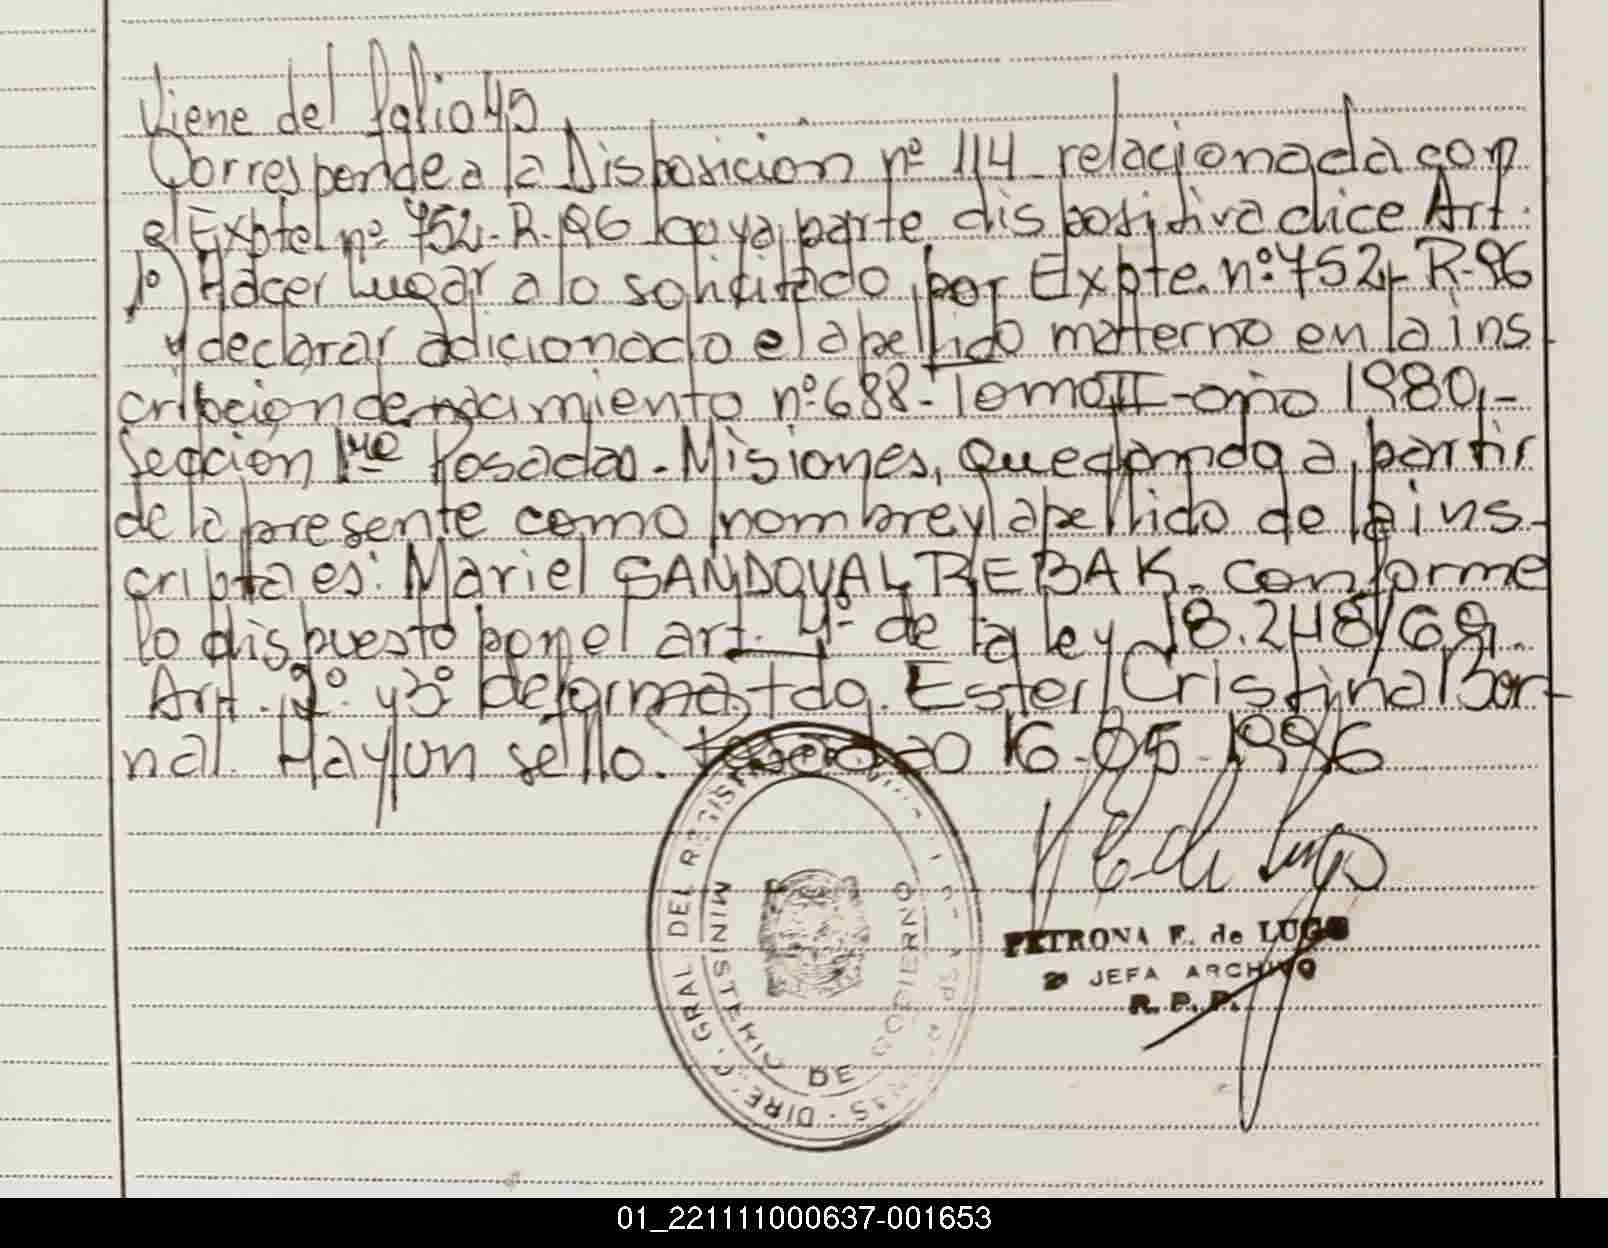 Viene del folio 45
Corresponde a la Disposicion nº 114 relacionada con
el Expte nº 752-R-96 cuya parte dispositiva dice Art.
1º) Hacer Lugar a lo solicitado por Expte. nº 752-R-96
y declarar adicionado el apellido materno en la ins
cripcion de nacimiento nº 688-Tomo II-año 1980,-
Sección 1ra Posadas-Misiones, quedando a partir
de la presente como nombre y apellido de la ins-
cripta es: Mariel SANDOVAL REBAK. conforme
lo dispuesto por el art. 4º de la ley 18.248/69.
Art. 2º y 3º de forma. Fdo. Ester Cristina Bor-
nal. Hay un sello. 16-05-1996
PETRONA F. de LUGO
2ª JEFA ARCHIVO
R. P. P.
DIREC. GRAL DEL REGISTRO
MINISTERIO DE GOBIERNO
01_221111000637-001653